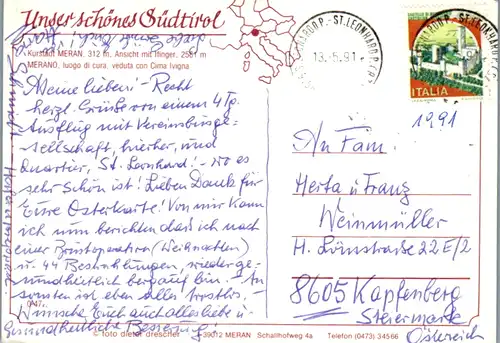 Unser schönes Südtirol
Kurstadt MERAN, 312 m, Ansicht mit Ifinger, 2581 m
MERANO, luogo di cura, veduta con Cima Ivigna
Meine Lieben! Recht
herzl. Grüße von einem 4 Tg.
Ausflug mit Vereinsbusge-
sellschaft, hierher, und
Quartier, St. Leonhard! - wo es
sehr schön ist! Lieben Dank für
Eure Osterkarte! Von mir kann
ich nun berichten dass ich nach
einer Brustoperation (Weihnachten)
u. 44 Bestrahlungen, wieder ge-
sundheitlich bergauf bin! - An-
sonsten ist eben alles trostlos.
Wünsche Euch auch alles liebe u
Gesundheitliche Besserung!
ST. LEONHARD P.
13.-5.91
ITALIA
1991
An Fam.
Herta u Franz
Weinmüller
H. Lönsstraße 22 E/2
8605 Kapfenberg
Steiermark
Österreich
© foto dieter drescher 39012 MERAN Schallhofweg 4a Telefon (0473) 34566